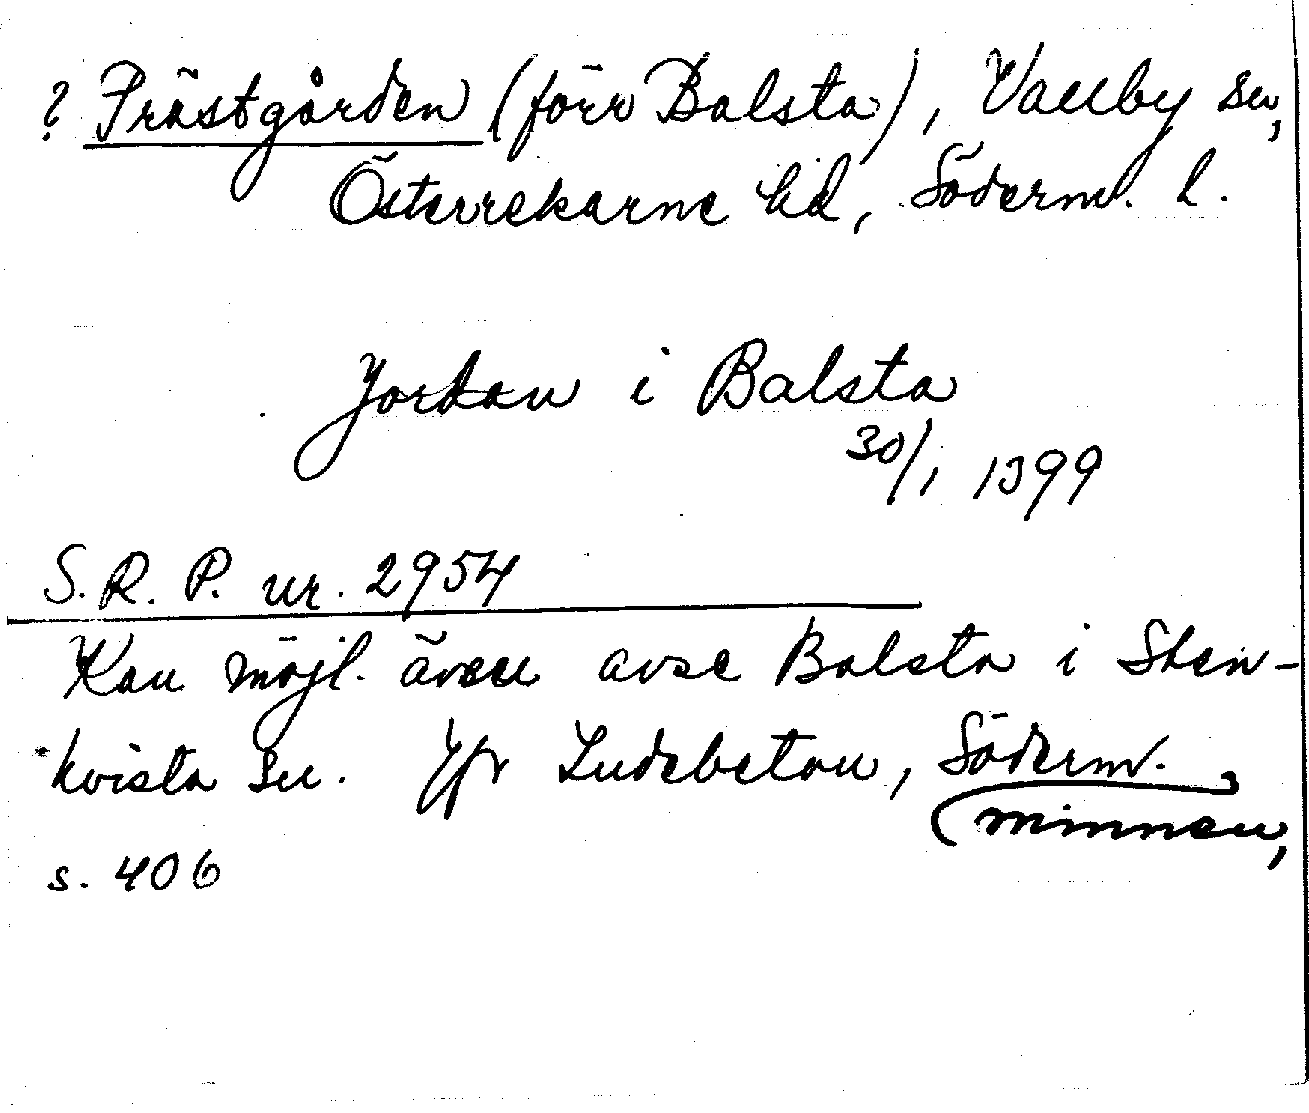 ? Prästgården (förr Balsta), Vallby sn,
Österrekarne hd, Söderm. l.
Jordan i Balsta
30/1 1399
S. R. P. nr. 2954
Kan möjl. även avse Balsta i Sten-
kvista sn. Jfr Ludebetan, Söderm.
minnen,
s. 406